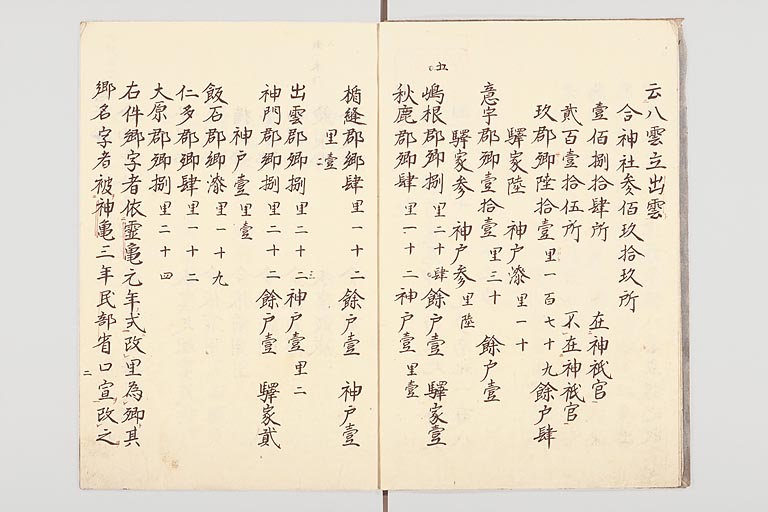 云八雲立出雲
合神社参佰玖拾玖所
壹佰捌拾肆所 在神祇官
貳百壹拾伍所 不在神祇官
玖郡郷陸拾壹里一百七十九餘戸肆
驛家陸 神戸漆里一十
意宇郡郷壹拾壹里三十 餘戸壹
驛家参 神戸参里陸
嶋根郡郷捌里二十肆餘戸壹 驛家壹
秋鹿郡郷肆里一十二神戸壹里壹
楯縫郡郷肆里一十二餘戸壹 神戸壹
里壹
出雲郡郷捌里二十二神戸壹里二
神門郡郷捌里二十二餘戸壹 驛家貳
神戸壹里壹
飯石郡郷漆里一十九
仁多郡郷肆里一十二
大原郡郷捌里二十四
右件郷字者依霊亀元年式改里為郷其
郷名字者被神亀三年民部省口宣改之
二